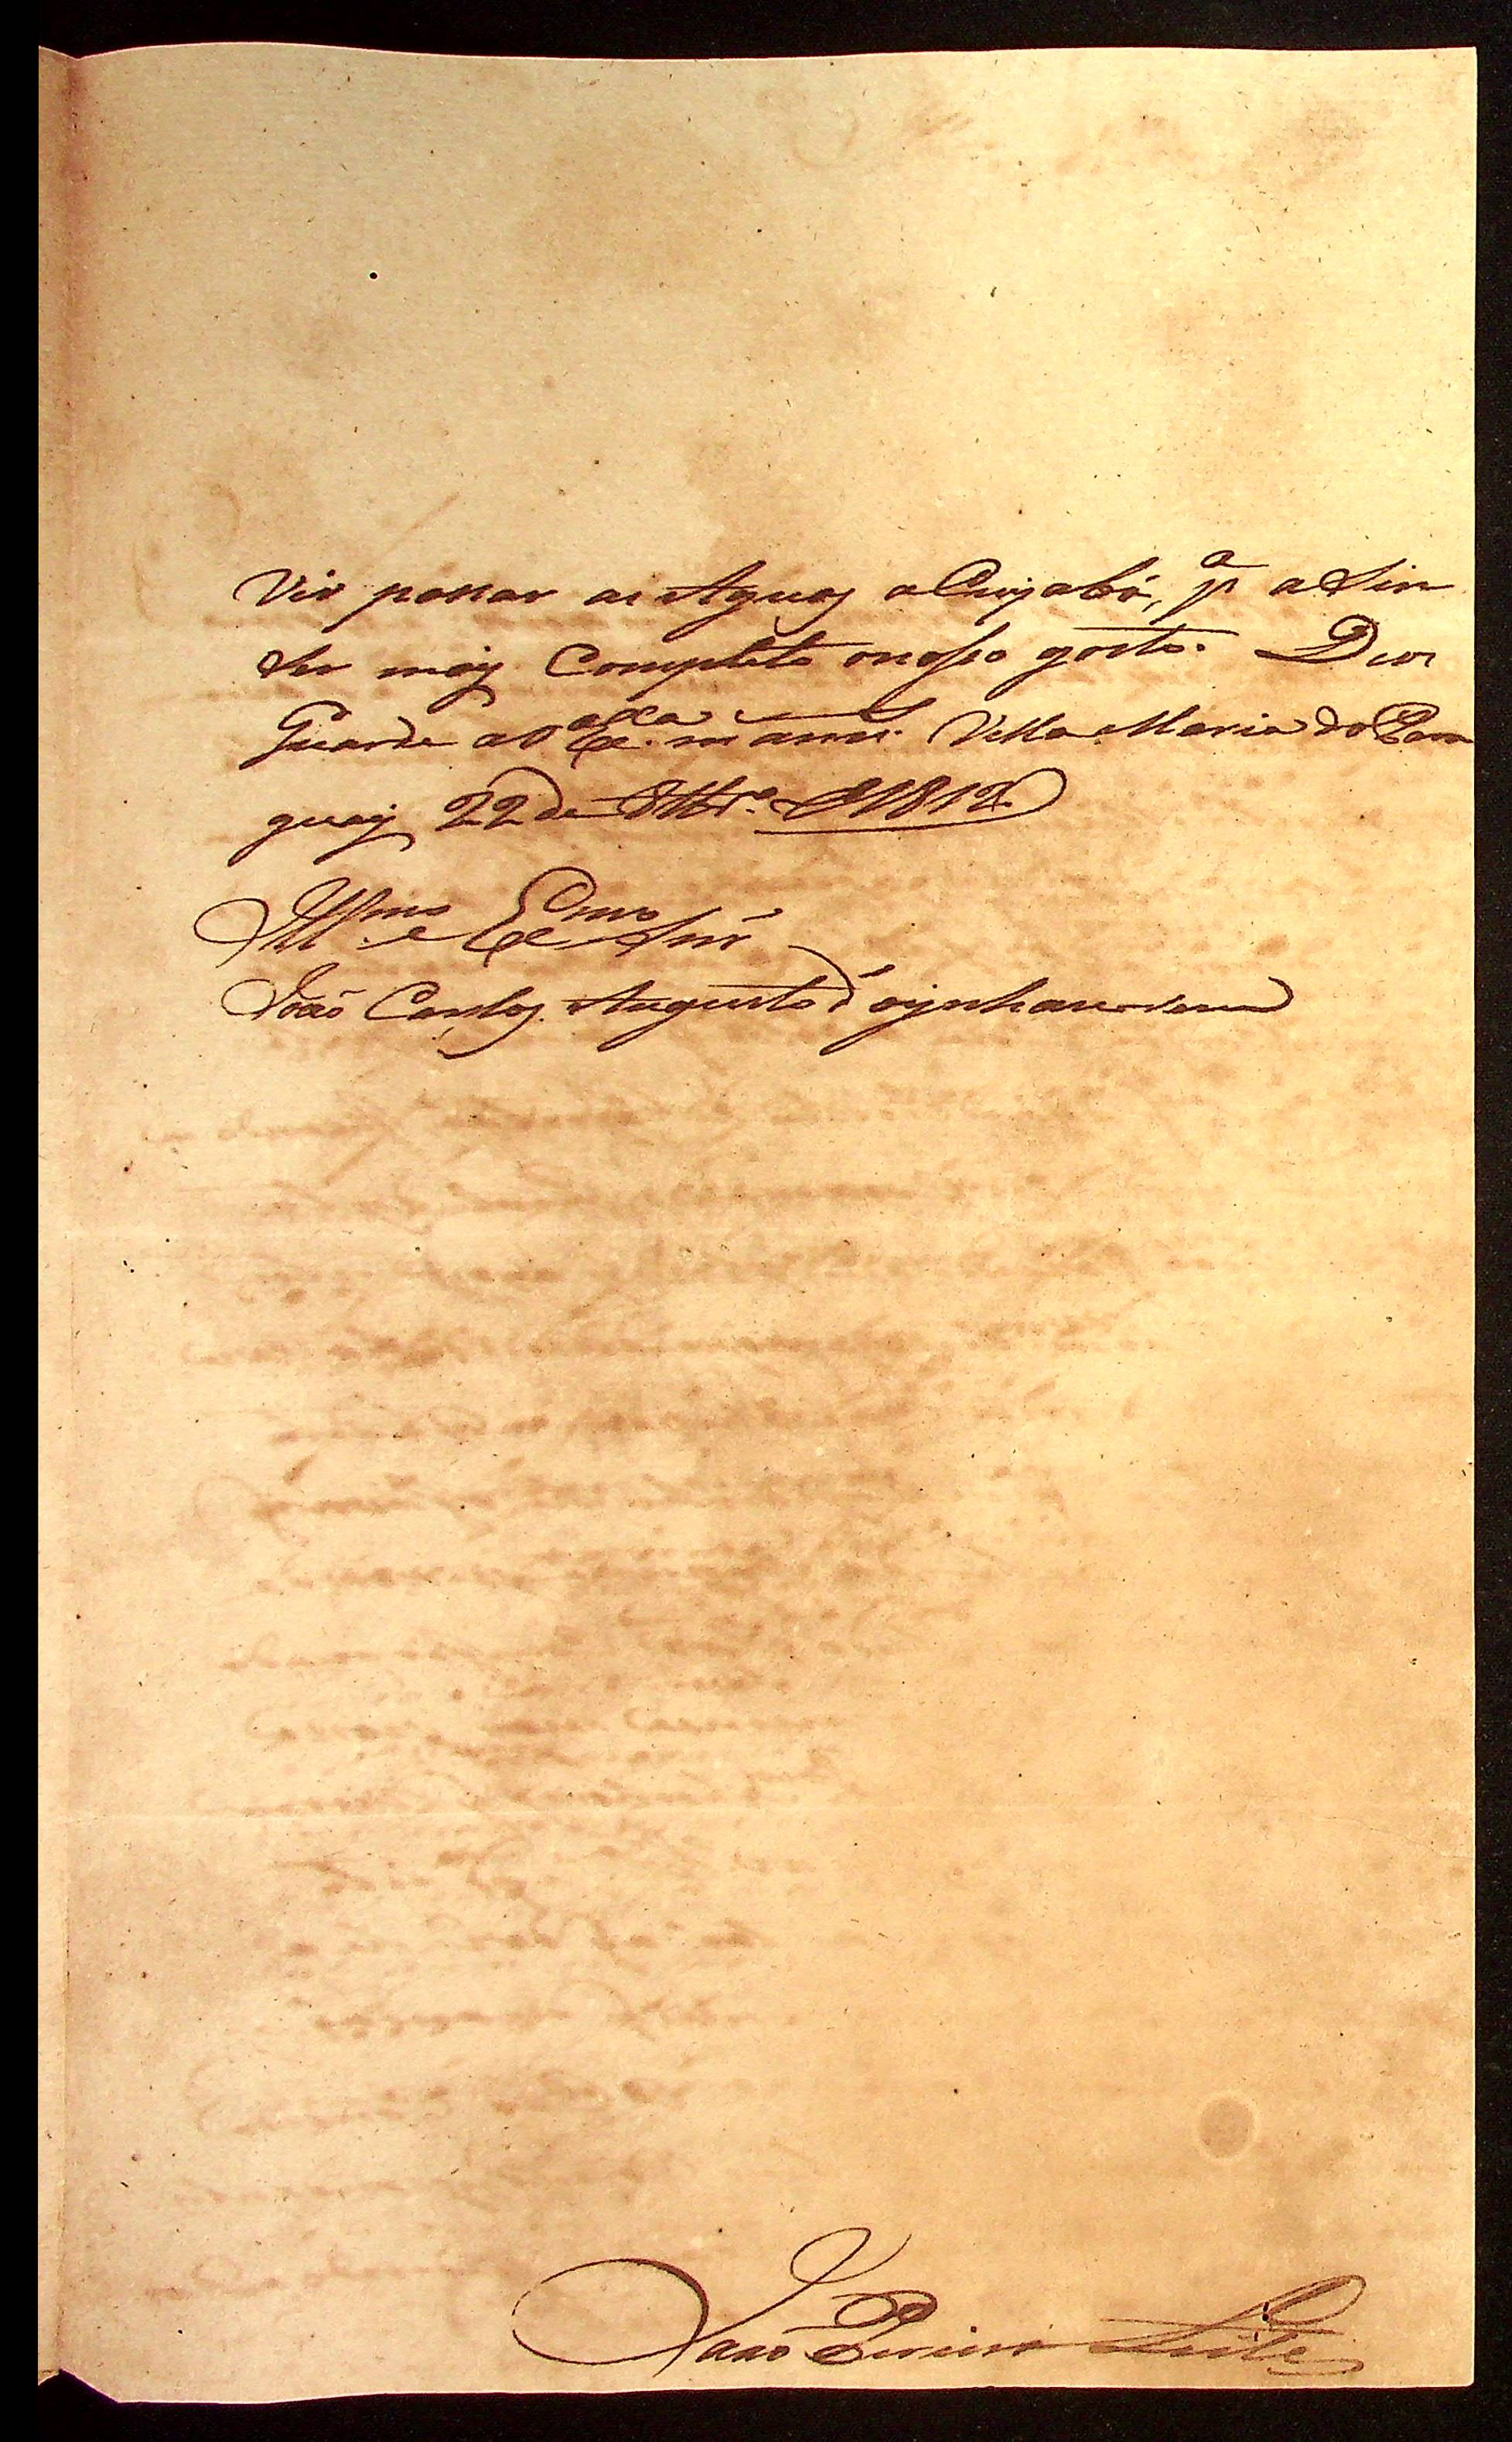 Vir passar as Agoas a Cuyabá, p.a a Sin
Ser mais Completo onosso gosto. Deos
Guarde a V Ex.cia m annos. Villa Maria do Para
guay 22 de 8tbr.o d 1812
Ill.mo e Ex.mo Snr
João Carlos Augusto d'oynhausem
João Pereira Leite